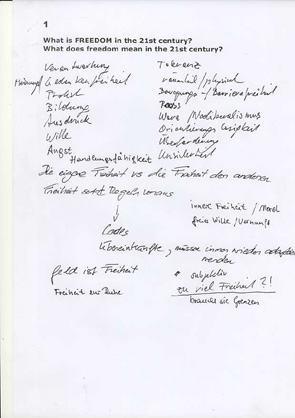 1
What is FREEDOM in the 21st century?
What does freedom mean in the 21st century?
Verantwortung
Toleranz
Meinungs
freiheit
räumlich/physisch
Protest
Bewegungs-/Barrierefreiheit
Bildung
Ausdruck
Wille
Orientierungslosigkeit
Angst
Überforderung
Handlungsfähigkeit
Unsicherheit
Die eigene Freiheit vs die Freiheit der anderen
Freiheit setzt Regeln voraus
innere Freiheit / Moral
freie Wille / Vernunft
Codes
Übereinkünfte, müssen immer wieder
werden
Geld ist Freiheit
subjektiv
zu viel Freiheit?!
Freiheit zur Ruhe
brauche sie Grenzen